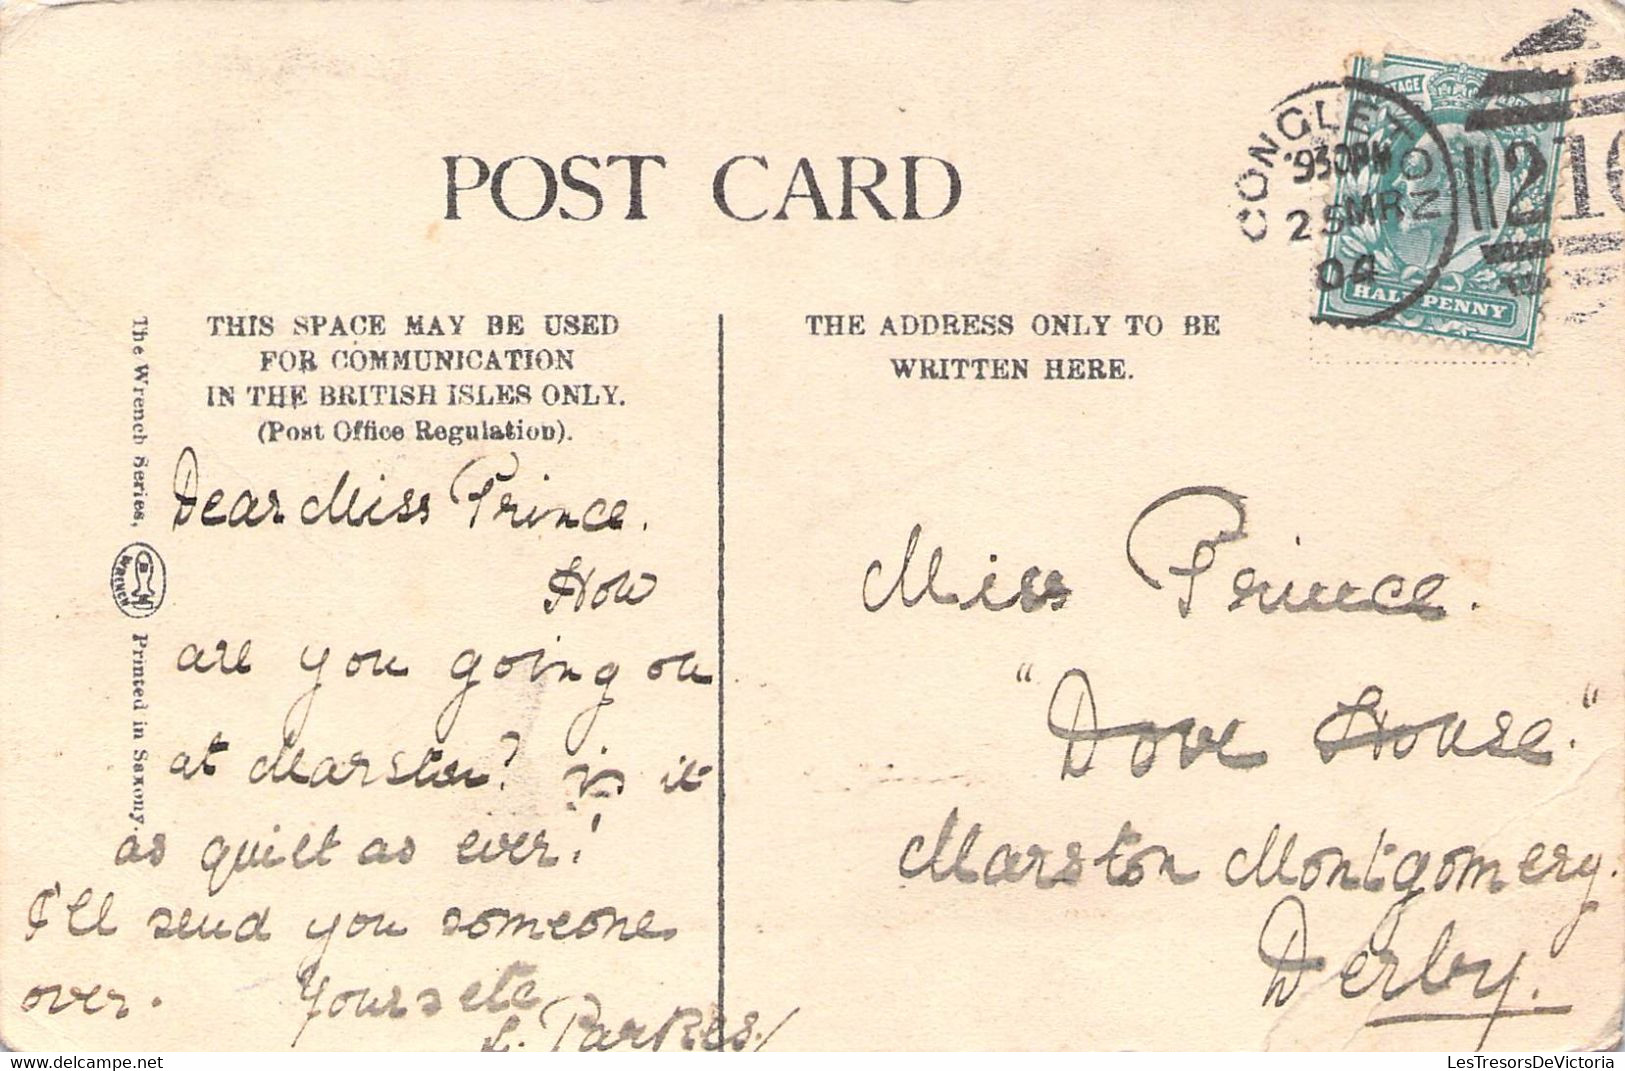 POST CARD
CONGLETON
9 30PM
25MR
04
210
POSTAGE
HALFPENNY
THIS SPACE MAY BE USED
FOR COMMUNICATION
IN THE BRITISH ISLES ONLY.
(Post Office Regulation).
THE ADDRESS ONLY TO BE
WRITTEN HERE.
The Wrench Series,
WRENCH
Printed in Saxony.
Dear Miss Prince.
How
are you going on
at Marston? is it
as quiet as ever!
I'll send you someone
over. Yours etc
L. Parkes.
Miss Prince.
"Dove House."
Marston Montgomery.
Derby.
delcampe.net
LesTresorsDeVictoria